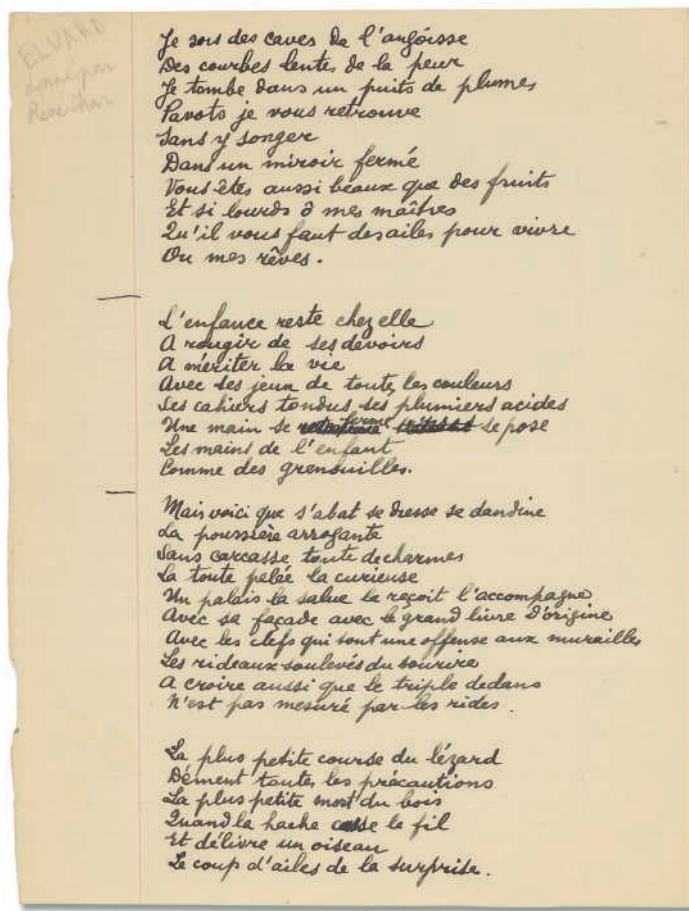 ELUARD
donné par
René Char
Je sors des caves de l'angoisse
Des courbes lentes de la peur
Je tombe dans un puits de plumes
Pavots je vous retrouve
Sans y songer
Dans un miroir fermé
Vous êtes aussi beaux que des fruits
Et si lourds ô mes maîtres
Qu'il vous faut des ailes pour vivre
Ou mes rêves.
L'enfance reste chez elle
A rougir de ses devoirs
A mériter la vie
Avec ses jeux de toutes les couleurs
Ses cahiers tondus ses plumiers acides
Une main se ferme se pose
Les mains de l'enfant
Comme des grenouilles.
Mais voici que s'abat se dresse se dandine
La poussière arrogante
Sans carcasse toute de charmes
La toute pelée la curieuse
Un palais la salue la reçoit l'accompagne
Avec sa façade avec le grand livre d'origine
Avec les clefs qui sont une offense aux murailles
Les rideaux soulevés du sourire
A croire aussi que le triple dedans
N'est pas mesuré par les rides.
La plus petite course du lézard
Dément toutes les précautions
La plus petite mort du bois
Quand la hache casse le fil
Et délivre un oiseau
Le coup d'ailes de la surprise.